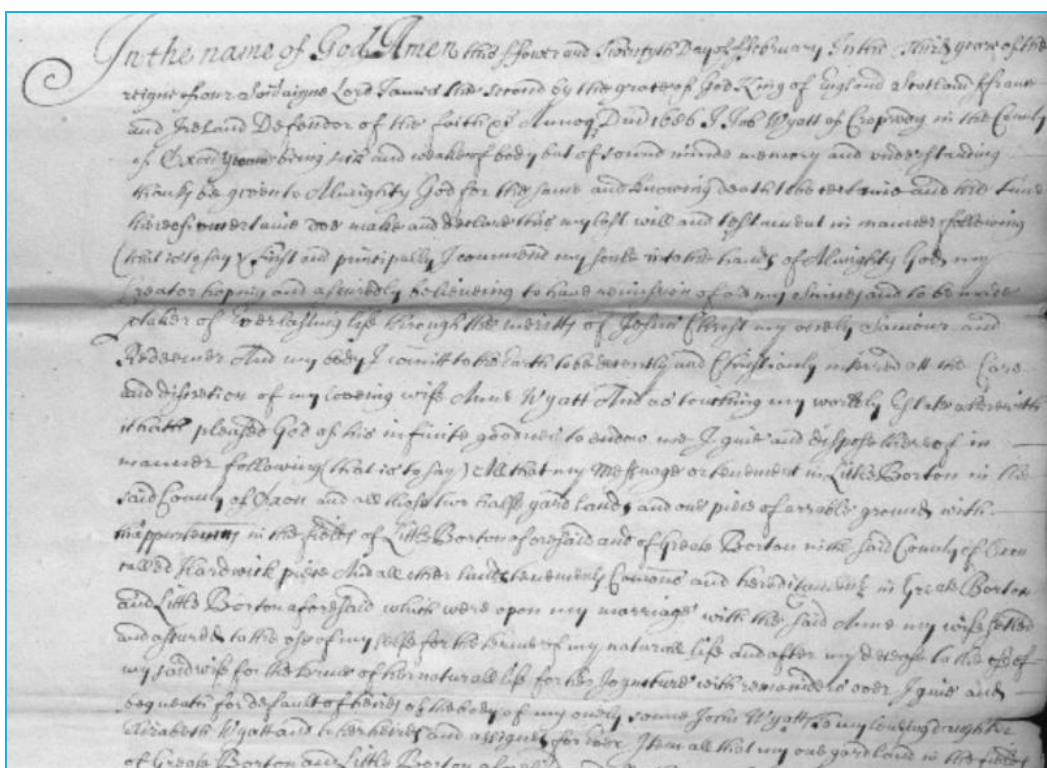 In the name of God Amen this ffower and Twentyth Day of ffebruary In the Third yeare of the
reigne of our Soveraigne Lord James the second by the grace of God King of England Scotland ffrance
and Ireland Defendor of the faith &c Annoq Dni 1686 I Job Wyatt of Cropredy in the County
of Oxon yeoman being sick and weake of body but of sound minde memory and understanding
thanks be given to Almighty God for the same and knowing death to be certaine and the time
thereof uncertaine doe make and declare this my last will and testament in manner following
(that is to say) First and principally I commend my soule into the hands of Almighty God my
Creator hopeing and assuredly believeing to have remission of all my Sinnes and to be made
ptaker of Everlasting life through the meritts of Jesus Christ my onely Saviour and
Redeemer And my body I comitt to the Earth to be decently and Christianly interred att the Care
and discretion of my loveing wife Anne Wyatt And as touching my worldly Estate wherewith
it hath pleased God of his infinite goodnes to endow me I give and dispose thereof in
manner following (that is to say) All that my Messuage or tenement in Little Borton in the
said County of Oxon and all those two halfe yard lands and one piece of arrable ground with
thappurtennces in the fields of Little Borton aforesaid and of Greate Borton in the said County of Oxon
called Hardwick piece And all other lands tenements Comons and hereditaments in Greate Borton
and Little Borton aforesaid which were upon my marriage with the said Anne my wife setled
and assured to the use of my selfe for the terme of my naturall life and after my decease to the use of
my said wife for the terme of her naturall life for her Joynture with remainders over I give and
bequeath for default of heires of the body of my onely sonne John Wyatt to my loveing daughter
Elizabeth Wyatt and to her heires and assignes for ever Item all that my one yard land in the fields
of Greate Borton and Little Borton